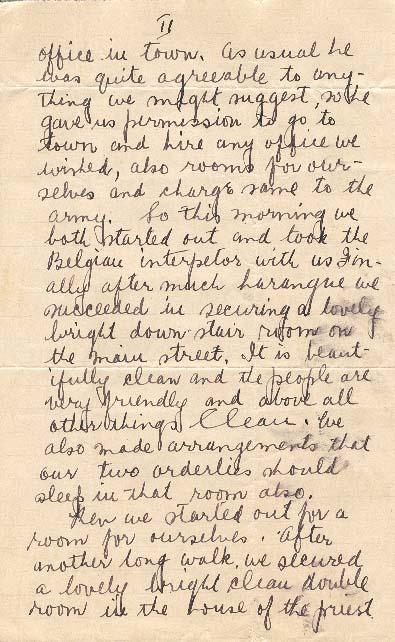 II
office in town. As usual he
was quite agreeable to any-
thing we might suggest, so he
gave us permission to go to
town and hire any office we
wished, also rooms for our-
selves and charge same to the
army. So this morning we
both started out and took the
Belgian interpetor with us Fin-
ally after much harangue we
succeeded in securing a lovely
bright down-stair room on
the main street. It is beaut-
ifully clean and the people are
very friendly and above all
other things Clean. We
also made arrangements that
our two orderlies should
sleep in that room also.
Then we started out for a
room for ourselves. After
another long walk, we secured
a lovely bright clean double
room in the house of the priest